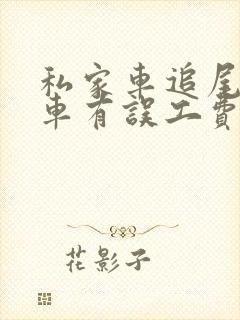 私家車追尾
車有誤工費
花影子